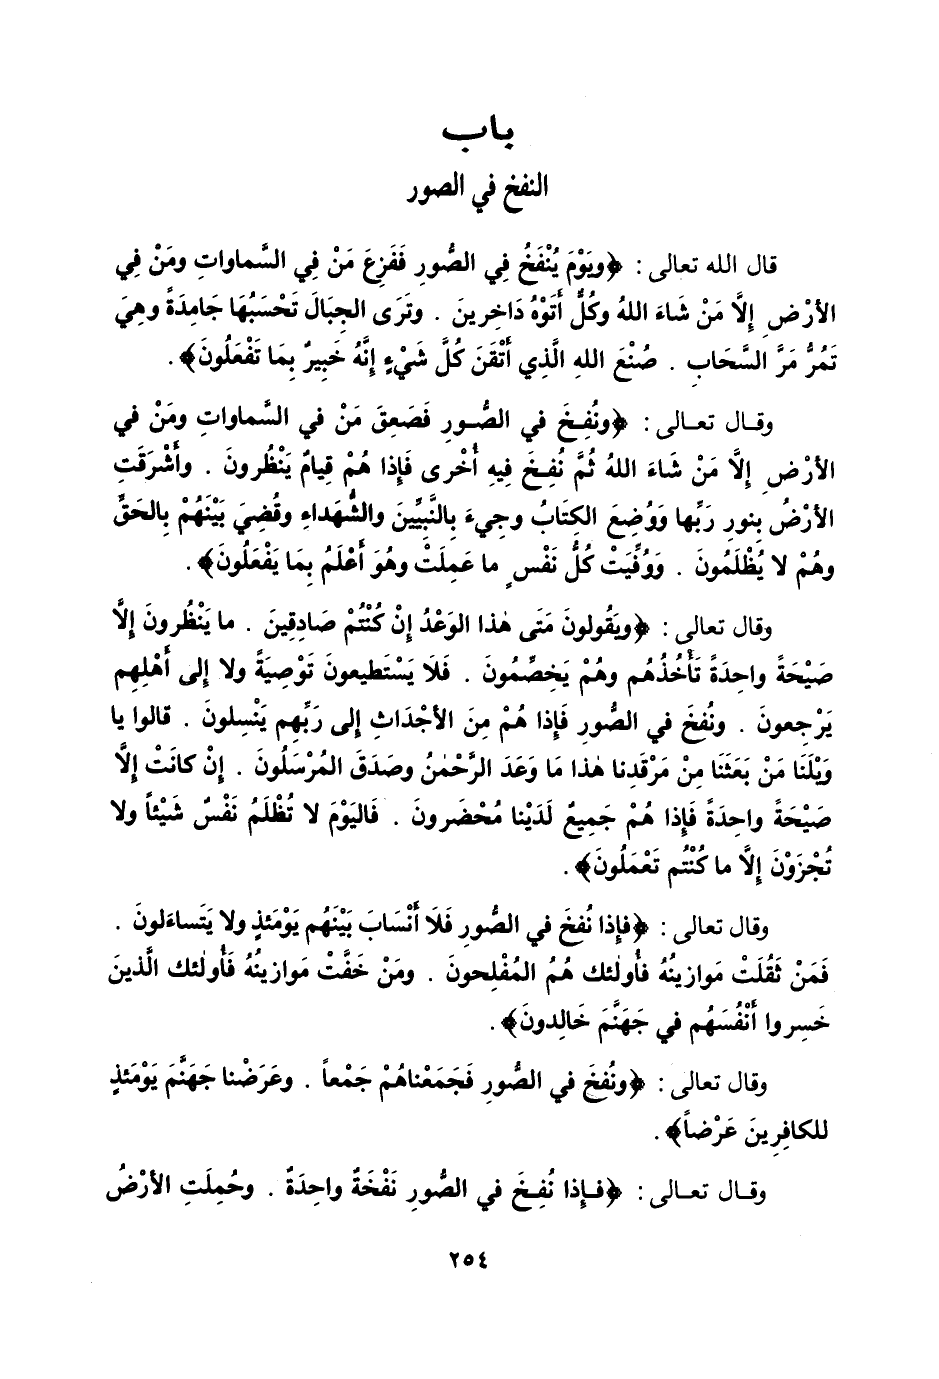 باب
النفخ في الصور
قال الله تعالى : ﴿ويَوْمَ يُنْفَخُ فِي الصُّورِ فَفَزِعَ مَنْ فِي السَّماواتِ ومَنْ فِي
الأرْضِ إِلَّا مَنْ شَاءَ اللهُ وكُلٌّ أَتَوْهُ دَاخِرِينَ . وتَرَى الجِبَالَ تَحْسَبُهَا جَامِدَةً وهِيَ
تَمُرُّ مَرَّ السَّحَابِ . صُنْعَ اللهِ الَّذِي أَتْقَنَ كُلَّ شَيْءٍ إِنَّهُ خَبِيرٌ بِمَا تَفْعَلُونَ﴾ .
وقـال تعـالى : ﴿ونُفِـخَ في الصُّـورِ فَصَعِقَ مَنْ في السَّماواتِ ومَنْ في
الأرْضِ إِلَّا مَنْ شَاءَ اللهُ ثُمَّ نُفِـخَ فيهِ أُخْرى فَإِذا هُمْ قِيامٌ يَنْظُرونَ . وأَشْرَقَتِ
الأرْضُ بِنورِ رَبِّها وَوُضِعَ الكِتابُ وجيءَ بِالنَّبِيِّينَ والشُّهَداءِ وقُضِيَ بَيْنَهُمْ بِالحَقِّ
وهُمْ لا يُظْلَمُونَ . وَوُفِّيَتْ كُلُّ نَفْسٍ ما عَمِلَتْ وهُوَ أَعْلَمُ بِمَا يَفْعَلُونَ﴾ .
وقال تعالى : ﴿ويَقُولونَ مَتَى هٰذا الوَعْدُ إِنْ كُنْتُمْ صَادِقِينَ . ما يَنْظُرونَ إِلَّا
صَيْحَةً واحِدَةً تَأْخُذُهُم وهُمْ يَخِصِّمُونَ . فَلَا يَسْتَطيعونَ تَوْصِيَةً ولا إِلى أَهْلِهِم
يَرْجِعونَ . ونُفِخَ في الصُّورِ فَإِذا هُمْ مِنَ الأجْداثِ إِلى رَبِّهِم يَنْسِلونَ . قالوا يا
وَيْلَنَا مَنْ بَعَثَنَا مِنْ مَرْقَدِنا هٰذا مَا وَعَدَ الرَّحْمٰنُ وصَدَقَ المُرْسَلُونَ . إِنْ كانَتْ إِلَّا
صَيْحَةً واحِدَةً فَإِذا هُمْ جَمِيعٌ لَدَيْنا مُحْضَرونَ . فَاليَوْمَ لا تُظْلَمُ نَفْسٌ شَيْئاً ولا
تُجْزَوْنَ إِلَّا ما كُنْتُم تَعْمَلُونَ﴾ .
وقال تعالى : ﴿فإِذا نُفِخَ في الصُّورِ فَلَا أَنْسَابَ بَيْنَهُم يَوْمَئذٍ ولا يَتَساءَلونَ .
فَمَنْ ثَقُلَتْ مَوازينُهُ فأُولٰئك هُمُ المُفْلِحونَ . ومَنْ خَفَّتْ مَوازينُهُ فَأُولٰئك الَّذينَ
خَسِروا أَنْفُسَهُم في جَهَنَّمَ خَالِدونَ﴾ .
وقال تعالى : ﴿ونُفِخَ في الصُّورِ فَجَمَعْناهُمْ جَمْعاً . وعَرَضْنا جَهَنَّمَ يَوْمَئذٍ
للكافِرينَ عَرْضاً﴾ .
وقـال تعـالى : ﴿فـإِذا نُفِـخَ في الصُّورِ نَفْخَةٌ واحِدَةٌ . وحُمِلَتِ الأرْضُ
٢٥٤